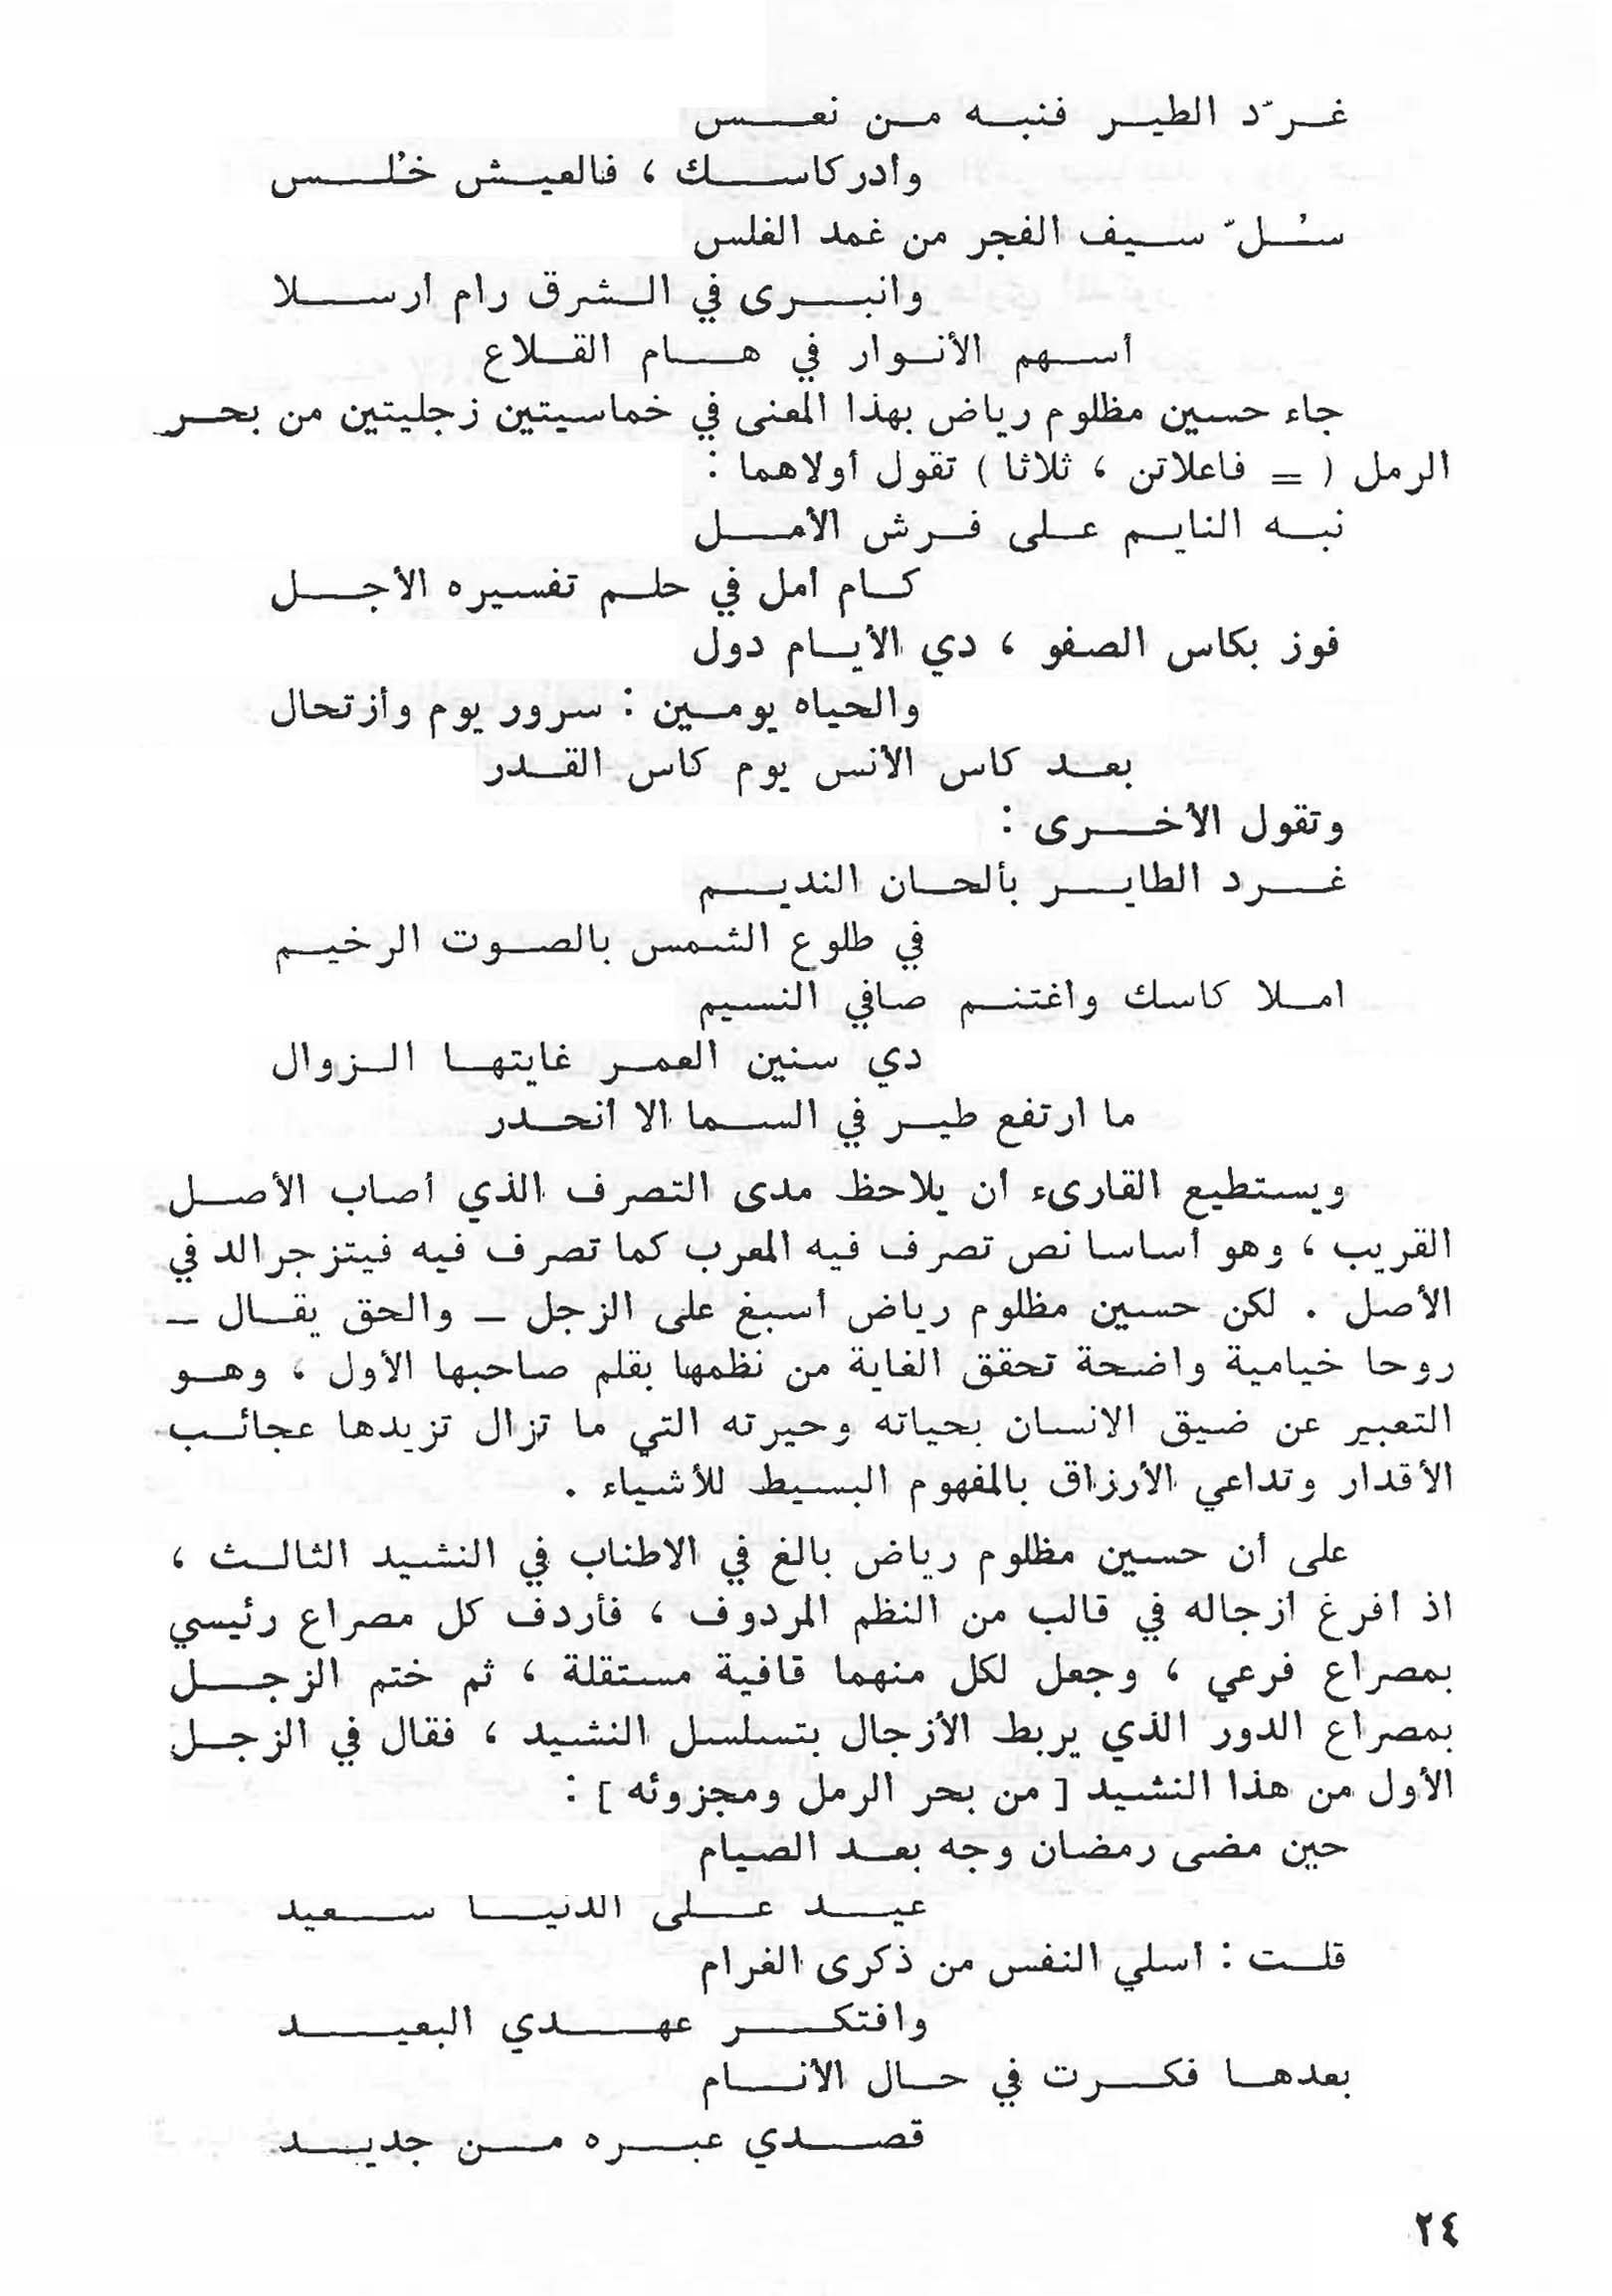 غرّد الطير فنبه من نعس
وأدر كاسك ، فالعيش خُلس
سُلّ سيف الفجر من غمد الغلس
وانبرى في الشرق رام أرسلا
أسهم الأنوار في هام القلاع
جاء حسين مظلوم رياض بهذا المعنى في خماسيتين زجليتين من بحر
الرمل ( = فاعلاتن ، ثلاثا ) تقول أولاهما :
نبه النايم على فرش الأمل
كام أمل في حلم تفسيره الأجل
فوز بكاس الصفو ، دي الأيام دول
والحياه يومين : سرور يوم وأزتحال
بعد كاس الأنس يوم كاس القدر
وتقول الأخرى :
غرد الطاير بألحان النديم
في طلوع الشمس بالصوت الرخيم
املا كاسك واغتنم صافي النسيم
دي سنين العمر غايتها الزوال
ما ارتفع طير في السما الا أنحدر
ويستطيع القارىء أن يلاحظ مدى التصرف الذي أصاب الأصل
القريب ، وهو أساسا نص تصرف فيه المعرب كما تصرف فيه فيتزجرالد في
الأصل . لكن حسين مظلوم رياض أسبغ على الزجل – والحق يقال –
روحا خيامية واضحة تحقق الغاية من نظمها بقلم صاحبها الأول ، وهو
التعبير عن ضيق الانسان بحياته وحيرته التي ما تزال تزيدها عجائب
الأقدار وتداعي الأرزاق بالمفهوم البسيط للأشياء .
على أن حسين مظلوم رياض بالغ في الاطناب في النشيد الثالث ،
اذ افرغ ازجاله في قالب من النظم المردوف ، فأردف كل مصراع رئيسي
بمصراع فرعي ، وجعل لكل منهما قافية مستقلة ، ثم ختم الزجل
بمصراع الدور الذي يربط الأزجال بتسلسل النشيد ، فقال في الزجل
الأول من هذا النشيد [ من بحر الرمل ومجزوئه ] :
حين مضى رمضان وجه بعد الصيام
عيد على الدنيا سعيد
قلت : أسلي النفس من ذكرى الغرام
وافتكر عهدي البعيد
بعدها فكرت في حال الأنام
قصدي عبره من جديد
٢٤